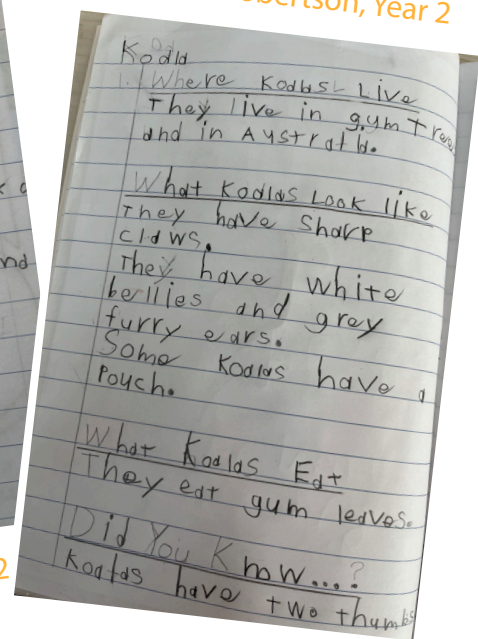 obertson, Year 2
Koala
1. Where Koalas Live
They live in gym trees
and in Aystralia.
What Koalas Look like
They have sharp
claws.
They have white
berllies and grey
furry ears.
Some Koalas have a
Pouch.
What Koalas Eat
They eat gum leaves.
Did You Know...?
Koalas have two thumbs
nd
2